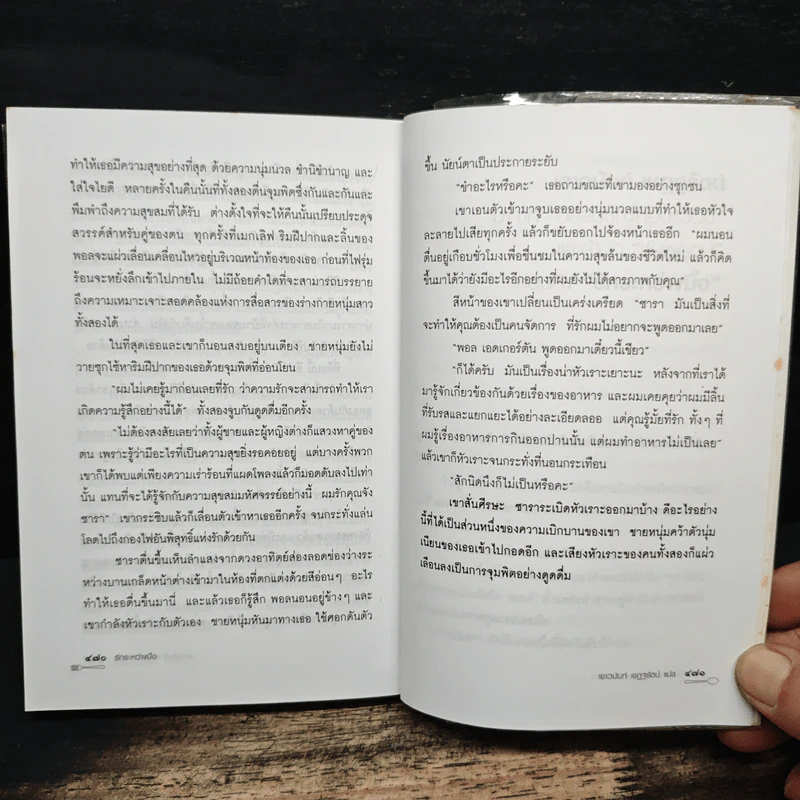 ทำให้เธอมีความสุขอย่างที่สุด ด้วยความนุ่มนวล ชำนิชำนาญ และ
ใส่ใจไยดี หลายครั้งในคืนนั้นที่ทั้งสองตื่นจุมพิตซึ่งกันและกันและ
พึมพำถึงความสุขสมที่ได้รับ ต่างตั้งใจที่จะให้คืนนั้นเปรียบประดุจ
สวรรค์สำหรับคู่ของตน ทุกครั้งที่เมกเลิฟ ริมฝีปากและลิ้นของ
พอลจะแผ่วเลื่อนเคลื่อนไหวอยู่บริเวณหน้าท้องของเธอ ก่อนที่ไฟรุ่ม
ร้อนจะหยั่งลึกเข้าไปภายใน ไม่มีถ้อยคำใดที่จะสามารถบรรยาย
ถึงความเหมาะเจาะสอดคล้องแห่งการสื่อสารของร่างกายหนุ่มสาว
ทั้งสองได้
ในที่สุดเธอและเขาก็นอนสงบอยู่บนเตียง ชายหนุ่มยังไม่
วายซุกไซ้หาริมฝีปากของเธอด้วยจุมพิตที่อ่อนโยน
"ผมไม่เคยรู้มาก่อนเลยที่รัก ว่าความรักจะสามารถทำให้เรา
เกิดความรู้สึกอย่างนี้ได้" ทั้งสองจูบกันดูดดื่มอีกครั้ง
"ไม่ต้องสงสัยเลยว่าทั้งผู้ชายและผู้หญิงต่างก็แสวงหาคู่ของ
ตน เพราะรู้ว่ามีอะไรที่เป็นความสุขยิ่งรอคอยอยู่ แต่บางครั้งพวก
เขาก็ได้พบแต่เพียงความเร่าร้อนที่แผดโพลงแล้วก็มอดดับลงไปเท่า
นั้น แทนที่จะได้รู้จักกับความสุขสมมหัศจรรย์อย่างนี้ ผมรักคุณจัง
ซารา" เขากระซิบแล้วก็เลื่อนตัวเข้าหาเธออีกครั้ง จนกระทั่งแล่น
โลดไปถึงกองไฟอันพิสุทธิ์แห่งรักด้วยกัน
ซาราตื่นขึ้นเห็นลำแสงจากดวงอาทิตย์ส่องลอดช่องว่างระ
หว่างบานเกล็ดหน้าต่างเข้ามาในห้องที่ตกแต่งด้วยสีอ่อนๆ อะไร
ทำให้เธอตื่นขึ้นมานี่ และแล้วเธอก็รู้สึก พอลนอนอยู่ข้างๆ และ
เขากำลังหัวเราะกับตัวเอง ชายหนุ่มหันมาทางเธอ ใช้ศอกดันตัว
๔๗๐ รักระหว่างมื้อ
ขึ้น นัยน์ตาเป็นประกายระยับ
"ขำอะไรหรือคะ" เธอถามขณะที่เขามองอย่างซุกซน
เขาเอนตัวเข้ามาจูบเธออย่างนุ่มนวลแบบที่ทำให้เธอหัวใจ
ละลายไปเสียทุกครั้ง แล้วก็ขยับออกไปจ้องหน้าเธออีก "ผมนอน
ตื่นอยู่เกือบชั่วโมงเพื่อชื่นชมในความสุขล้นของชีวิตใหม่ แล้วก็คิด
ขึ้นมาได้ว่ายังมีอะไรอีกอย่างที่ผมยังไม่ได้สารภาพกับคุณ"
สีหน้าของเขาเปลี่ยนเป็นเคร่งเครียด "ซารา มันเป็นสิ่งที่
จะทำให้คุณต้องเป็นคนจัดการ ที่รักผมไม่อยากจะพูดออกมาเลย"
"พอล เอดเกอร์ตัน พูดออกมาเดี๋ยวนี้เชียว"
"ก็ได้ครับ มันเป็นเรื่องน่าหัวเราะเยาะนะ หลังจากที่เราได้
มารู้จักเกี่ยวข้องกันด้วยเรื่องของอาหาร และผมเคยคุยว่าผมมีลิ้น
ที่รับรสและแยกแยะได้อย่างละเอียดลออ แต่คุณรู้มั้ยที่รัก ทั้งๆ ที่
ผมรู้เรื่องอาหารการกินออกปานนั้น แต่ผมทำอาหารไม่เป็นเลย"
แล้วเขาก็หัวเราะจนกระทั่งที่นอนกระเทือน
"สักนิดนึงก็ไม่เป็นหรือคะ"
เขาสั่นศีรษะ ซาราระเบิดหัวเราะออกมาบ้าง ดีอะไรอย่าง
นี้ที่ได้เป็นส่วนหนึ่งของความเบิกบานของเขา ชายหนุ่มคว้าตัวนุ่ม
เนียนของเธอเข้าไปกอดอีก และเสียงหัวเราะของคนทั้งสองก็แผ่ว
เลือนลงเป็นการจุมพิตอย่างดูดดื่ม
เยาวนันท์ เชฏฐรัตน์ แปล ๔๗๑